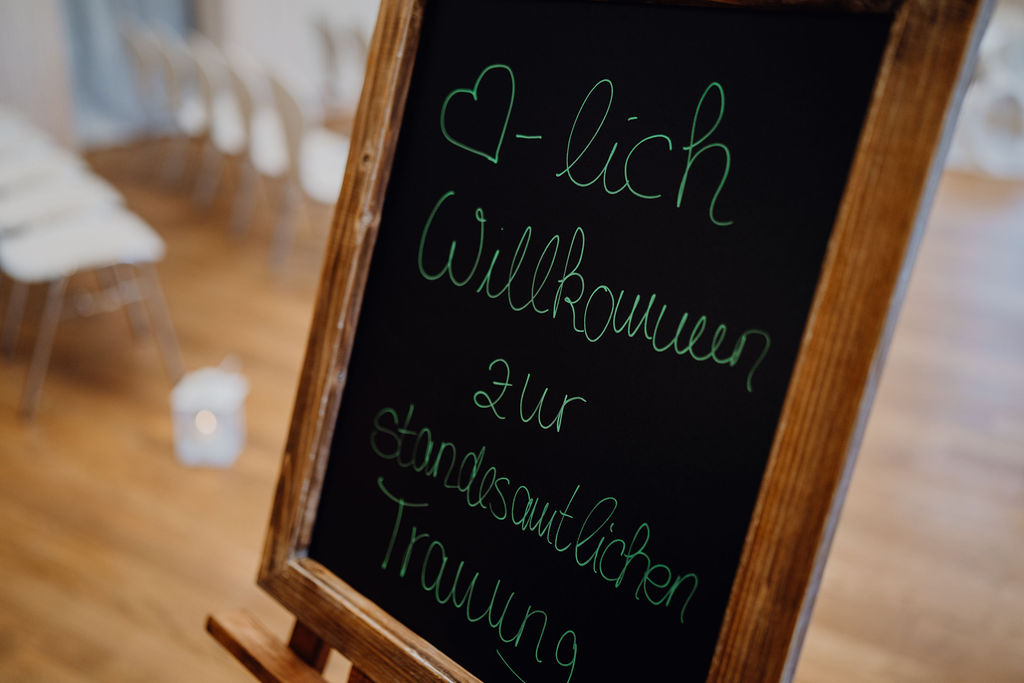 ♡-lich
Willkommen
zur
standesamtlichen
Trauung